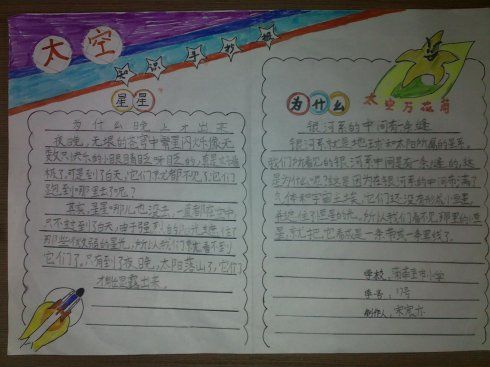 太空
知识手抄报
星星
为什么晚上才出来
夜晚，无垠的苍穹中繁星闪烁像无
数只快乐的小眼睛眨呀眨的，真是太
极了，可是到了白天，它们就都不见了，它们
跑到哪里去了呢？
其实，星星哪儿也没去，一直都在空中，
只不过到了白天，由于强烈的阳光遮住了
那些微弱的星光，所以我们就看不到
它们了。只有到了夜晚，太阳落山了，它们
才能显露出来。
为什么
太空万花筒
银河系的中间有一条缝
银河系就是地球和太阳所属的星系。
我们所看见的银河系中间是有一条小缝的，这
是为什么呢？这是因为在银河系的中间充满了
气体和宇宙尘埃，它们还没形成小恒星，
并遮住了恒星的光。所以我们看不见那里的恒
星，就把它看成是一条带或一条黑线了。
学校：
小学
学号：17号
制作人：